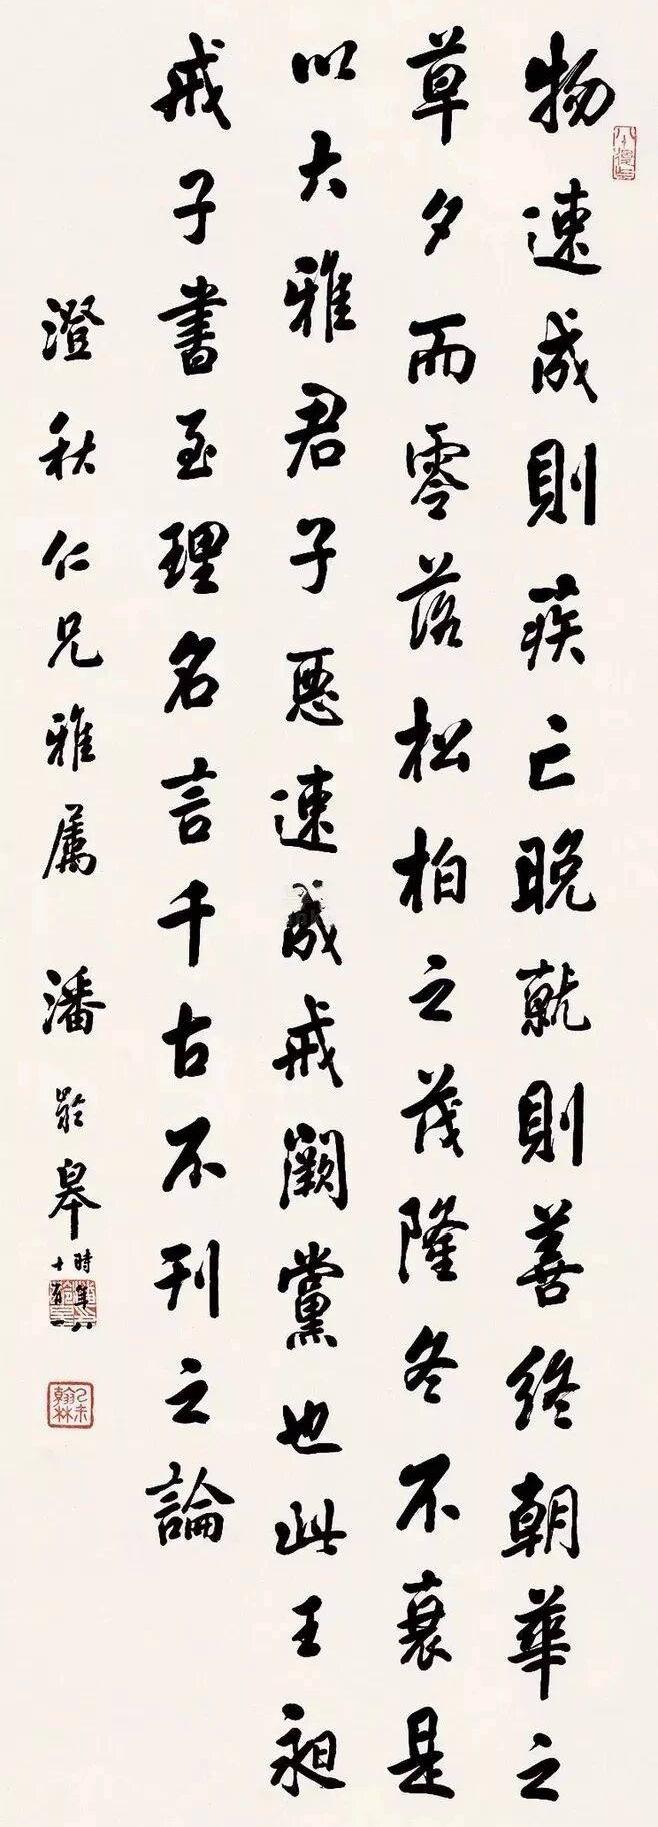 物速成則疾亡晚就則善終朝華之
草夕而零落松柏之茂隆冬不衰是
以大雅君子惡速成戒闕黨也此王昶
戒子書至理名言千古不刊之論
澄秋仁兄雅属 潘齡皋
時年八
十有一
己未
翰林